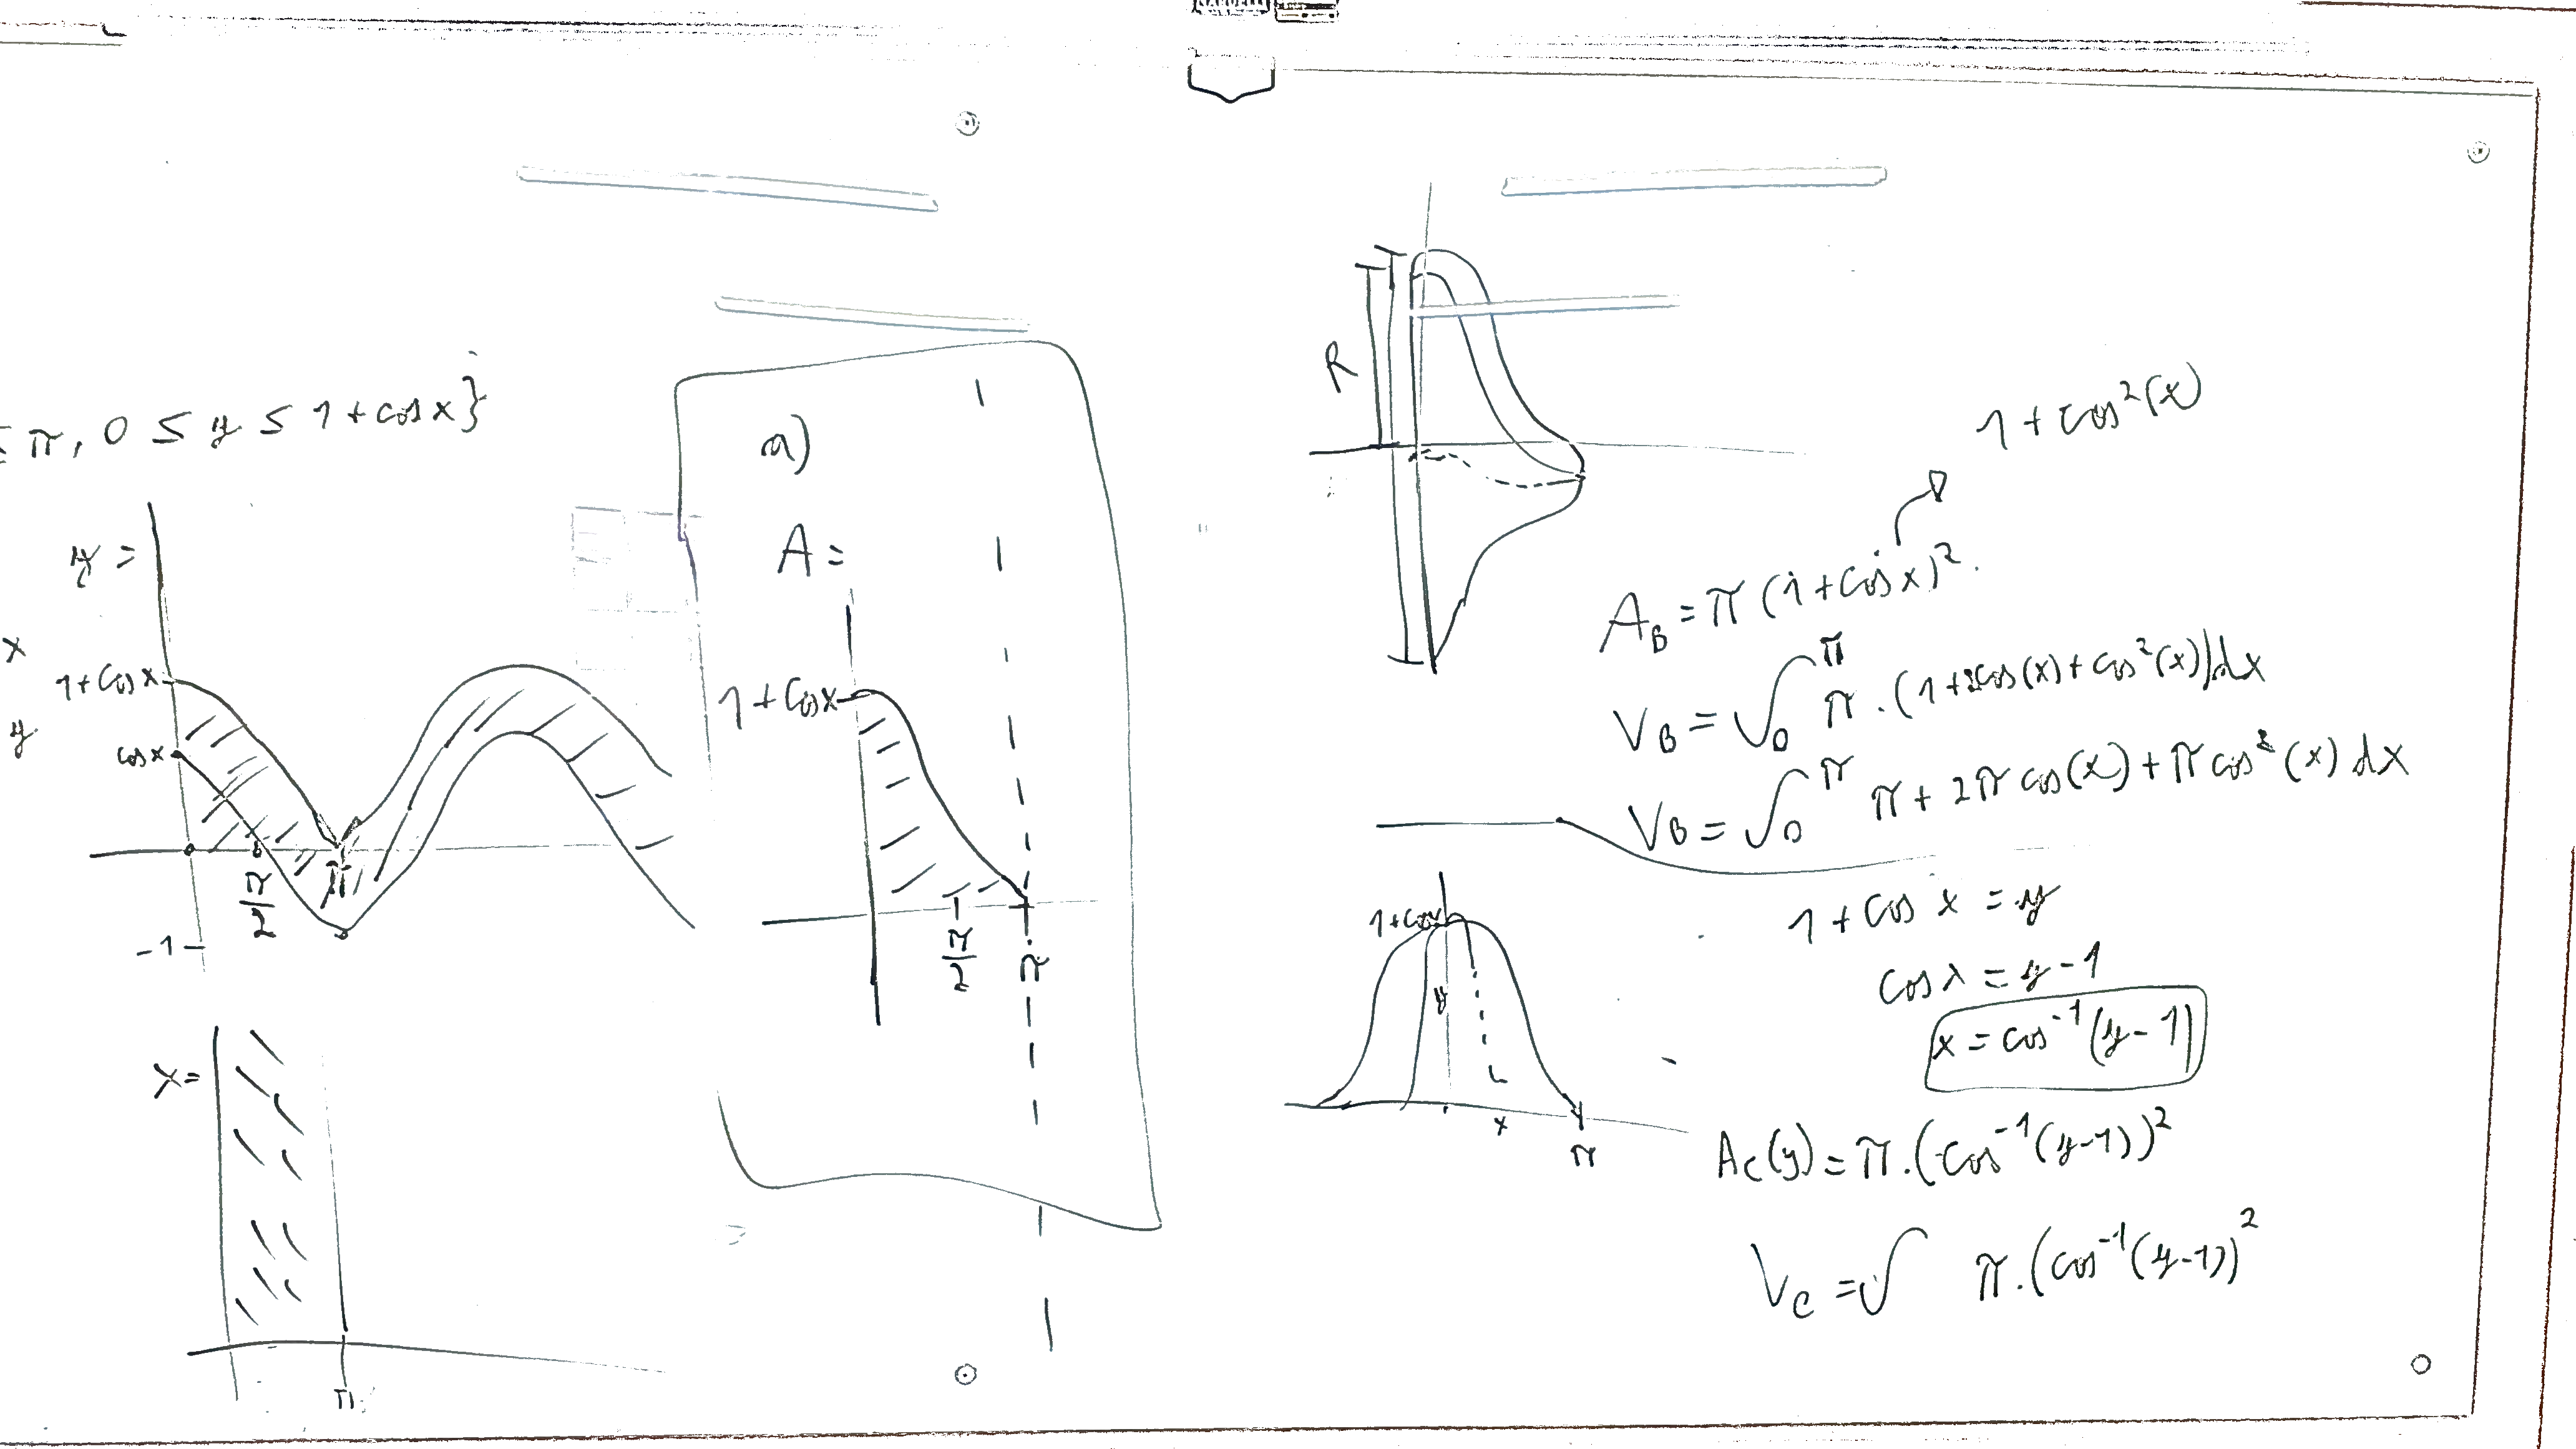 ≤ π, 0 ≤ y ≤ 1 + cos x}
y =
x
1 + cos x
y
cos x
π/2
π
-1
x =
π
a)
A =
1 + cos x
π/2
π
R
1 + cos²(x)
A_B = π (1 + cos x)².
V_B = ∫₀^π π . (1 + 2cos(x) + cos²(x)) dx
V_B = ∫₀^π π + 2π cos(x) + π cos²(x) dx
1 + cos x
y
x
π
1 + cos x = y
cos x = y - 1
x = cos⁻¹(y - 1)
A_C(y) = π . (cos⁻¹(y - 1))²
V_C = ∫ π . (cos⁻¹(y - 1))²